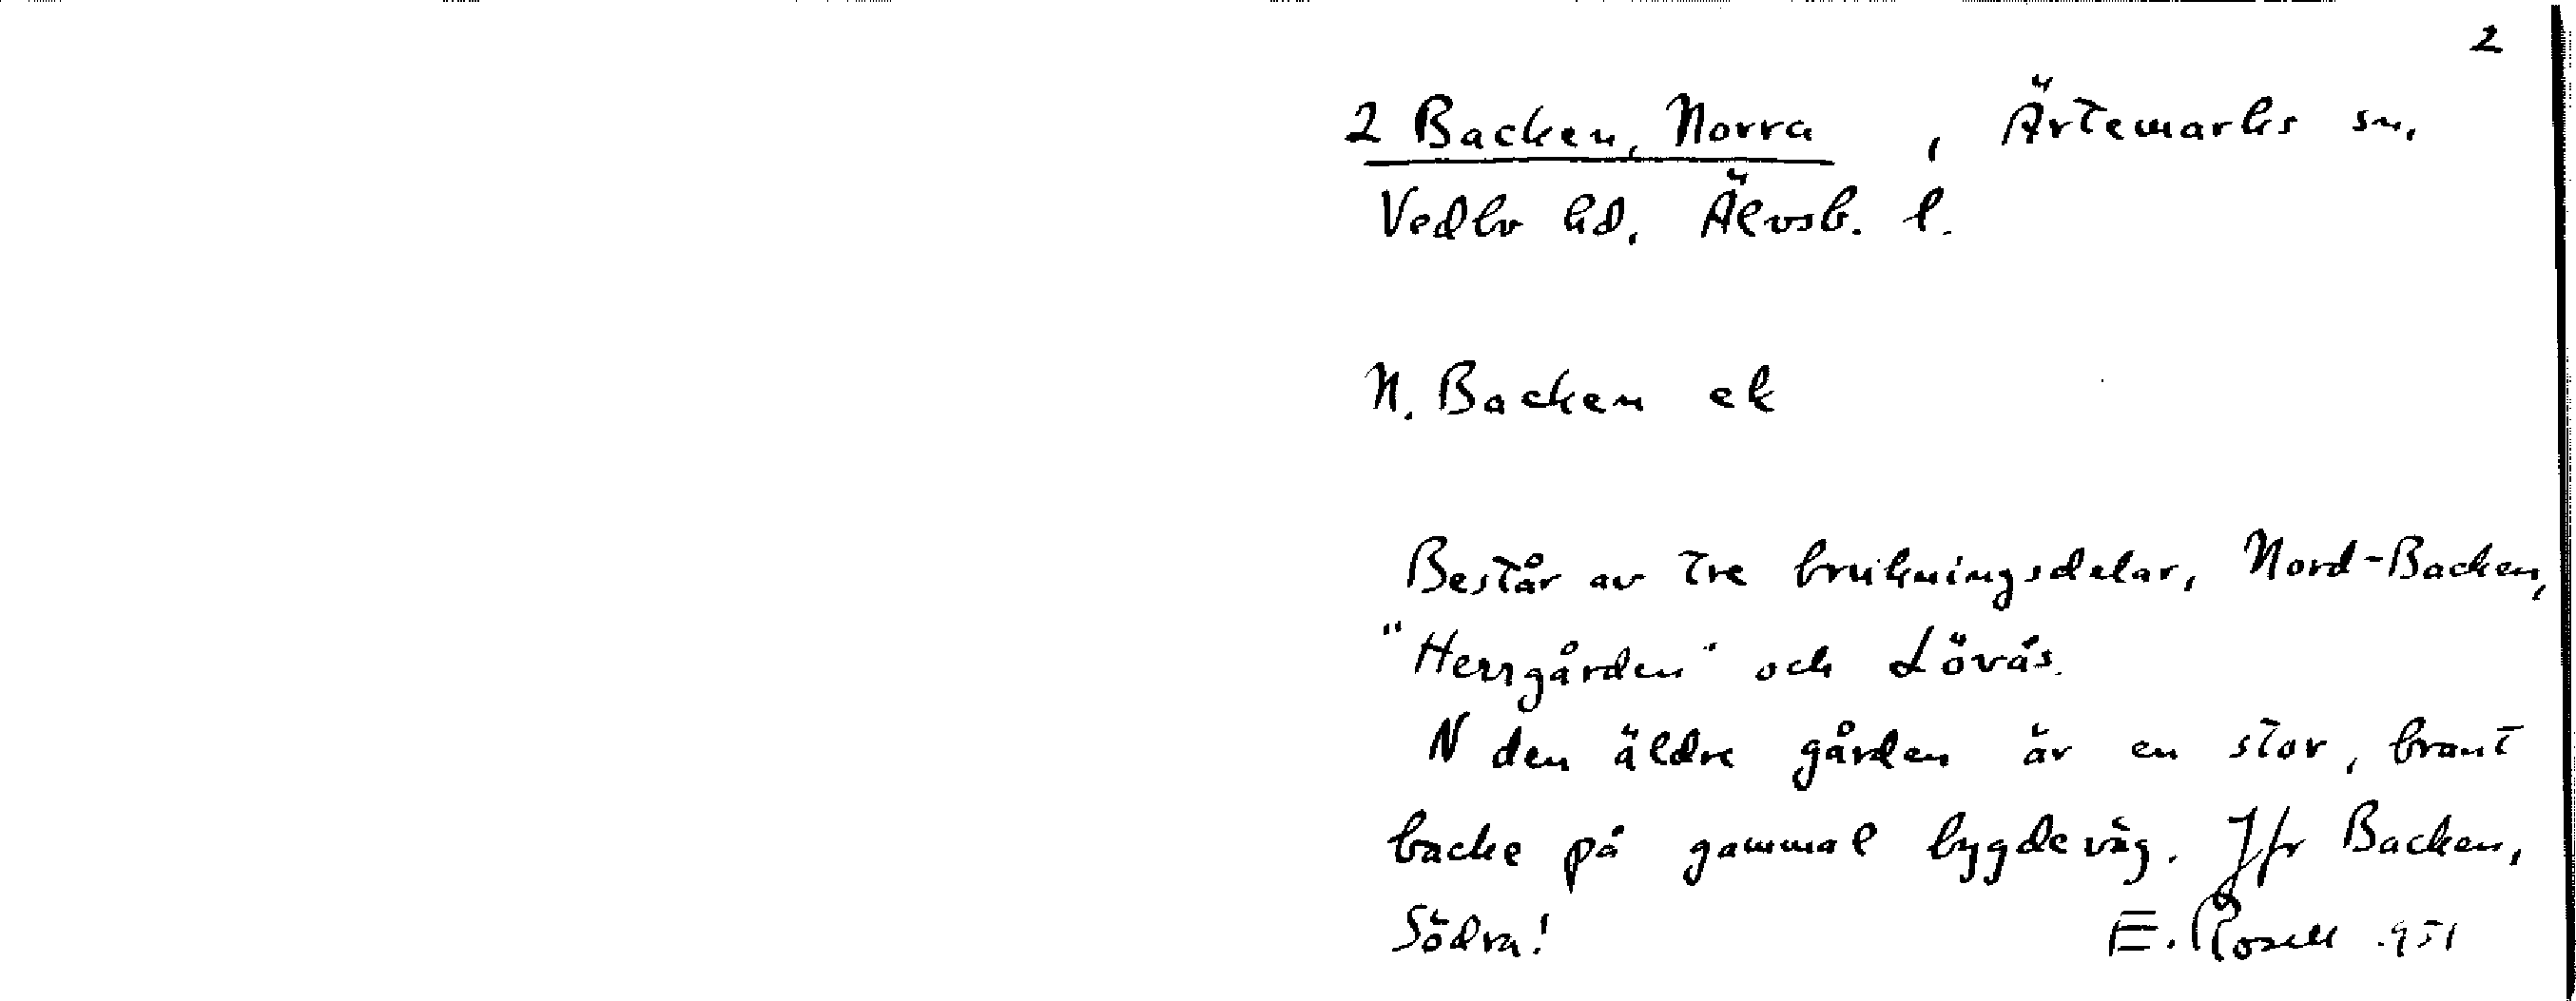 2
2 Backen, Norra, Ärtemarks sn.
Vedbo hd. Älvsb. l.
N. Backen ek
Består av tre brukningsdelar, Nord-Backen,
"Herrgården" och Lövås.
N den äldre gården är en stor, brant
backe på gammal bygdeväg. Jfr Backen,
Södra!
E. Rosell 951